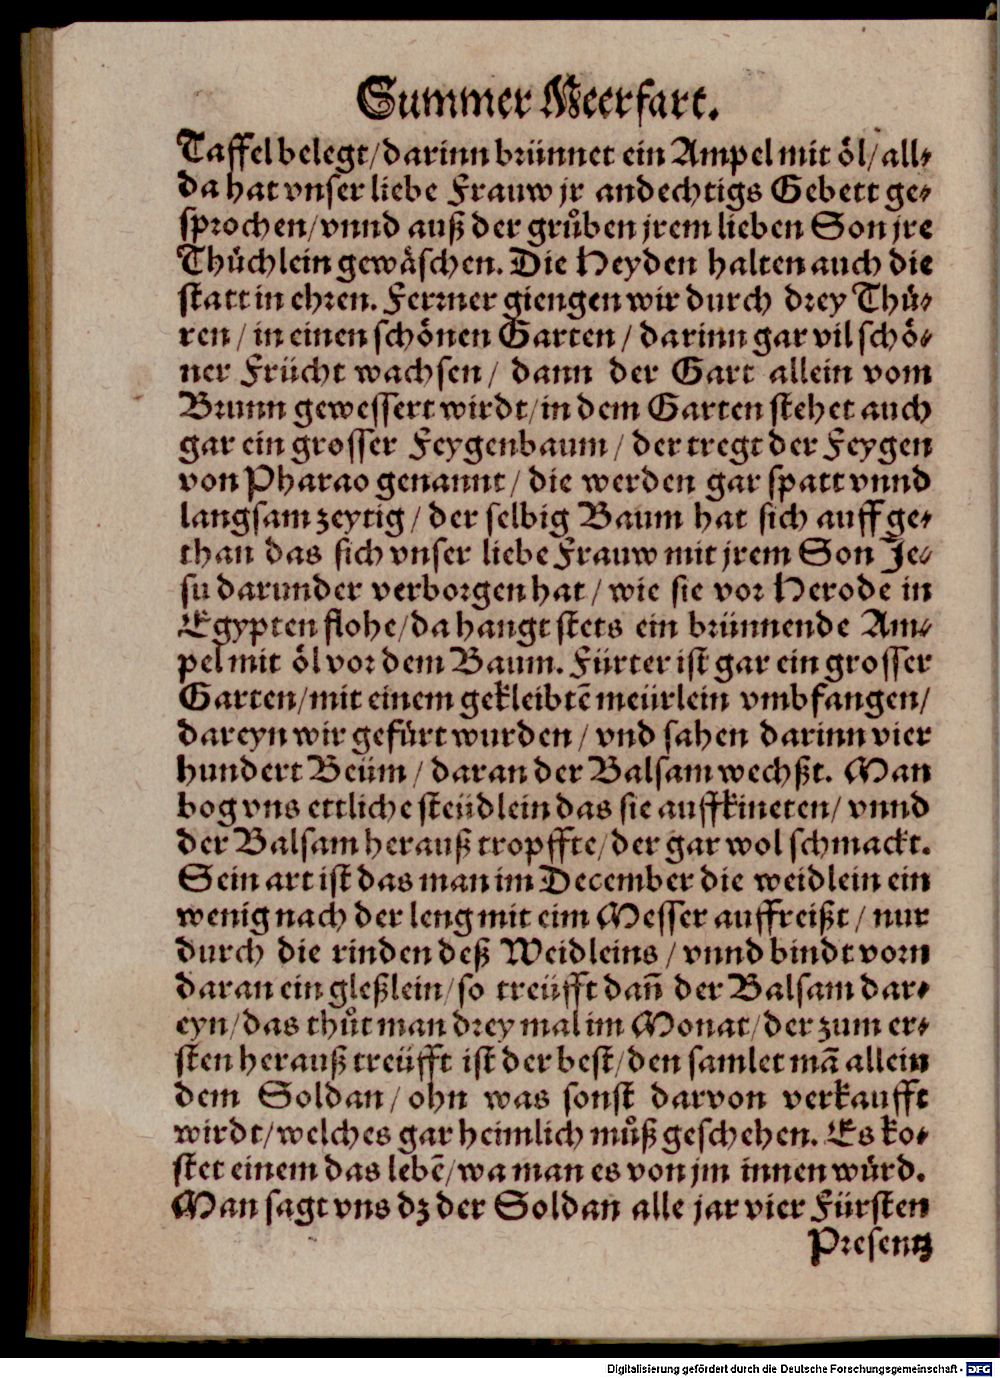 Summer Meerfart.
Taffel belegt/darinn brünnet ein Ampel mit öl/all-
da hat vnser liebe Frauw jr andechtigs Gebett ge-
sprochen/vnnd auß der grůben jrem lieben Son jre
Thůchlein gewåschen. Die Heyden halten auch die
statt in ehren. Ferrner giengen wir durch drey Thü-
ren/in einen schönen Garten/darinn gar vil schö-
ner Frücht wachsen/dann der Gart allein vom
Brunn gewessert wirdt/in dem Garten stehet auch
gar ein grosser Feygenbaum/der tregt der Feygen
von Pharao genannt/die werden gar spatt vnnd
langsam zeytig/der selbig Baum hat sich auff ge-
than das sich vnser liebe Frauw mit jrem Son Je-
su darunder verborgen hat/wie sie vor Herode in
Egypten flohe/da hangt stets ein brünnende Am-
pel mit öl vor dem Baum. Fürter ist gar ein grosser
Garten/mit einem gekleibtē meürlein vmbfangen/
dareyn wir gefürt wurden/vnd sahen darinn vier
hundert Beüm/daran der Balsam wechßt. Man
bog vns ettliche steüdlein das sie auffkineten/vnnd
der Balsam herauß tropffte/der gar wol schmackt.
Sein art ist das man im December die weidlein ein
wenig nach der leng mit eim Messer auffreißt/nur
durch die rinden deß Weidleins/vnnd bindt vorn
daran ein gleßlein/so treüfft dañ der Balsam dar-
eyn/das thůt man drey mal im Monat/der zum er-
sten herauß treüfft ist der best/den samlet mā allein
dem Soldan/ohn was sonst darvon verkaufft
wirdt/welches gar heimlich můß geschehen. Es ko-
stet einem das lebē/wa man es von jm innen würd.
Man sagt vns dz der Soldan alle jar vier Fürsten
Presentz
Digitalisierung gefördert durch die Deutsche Forschungsgemeinschaft - DFG